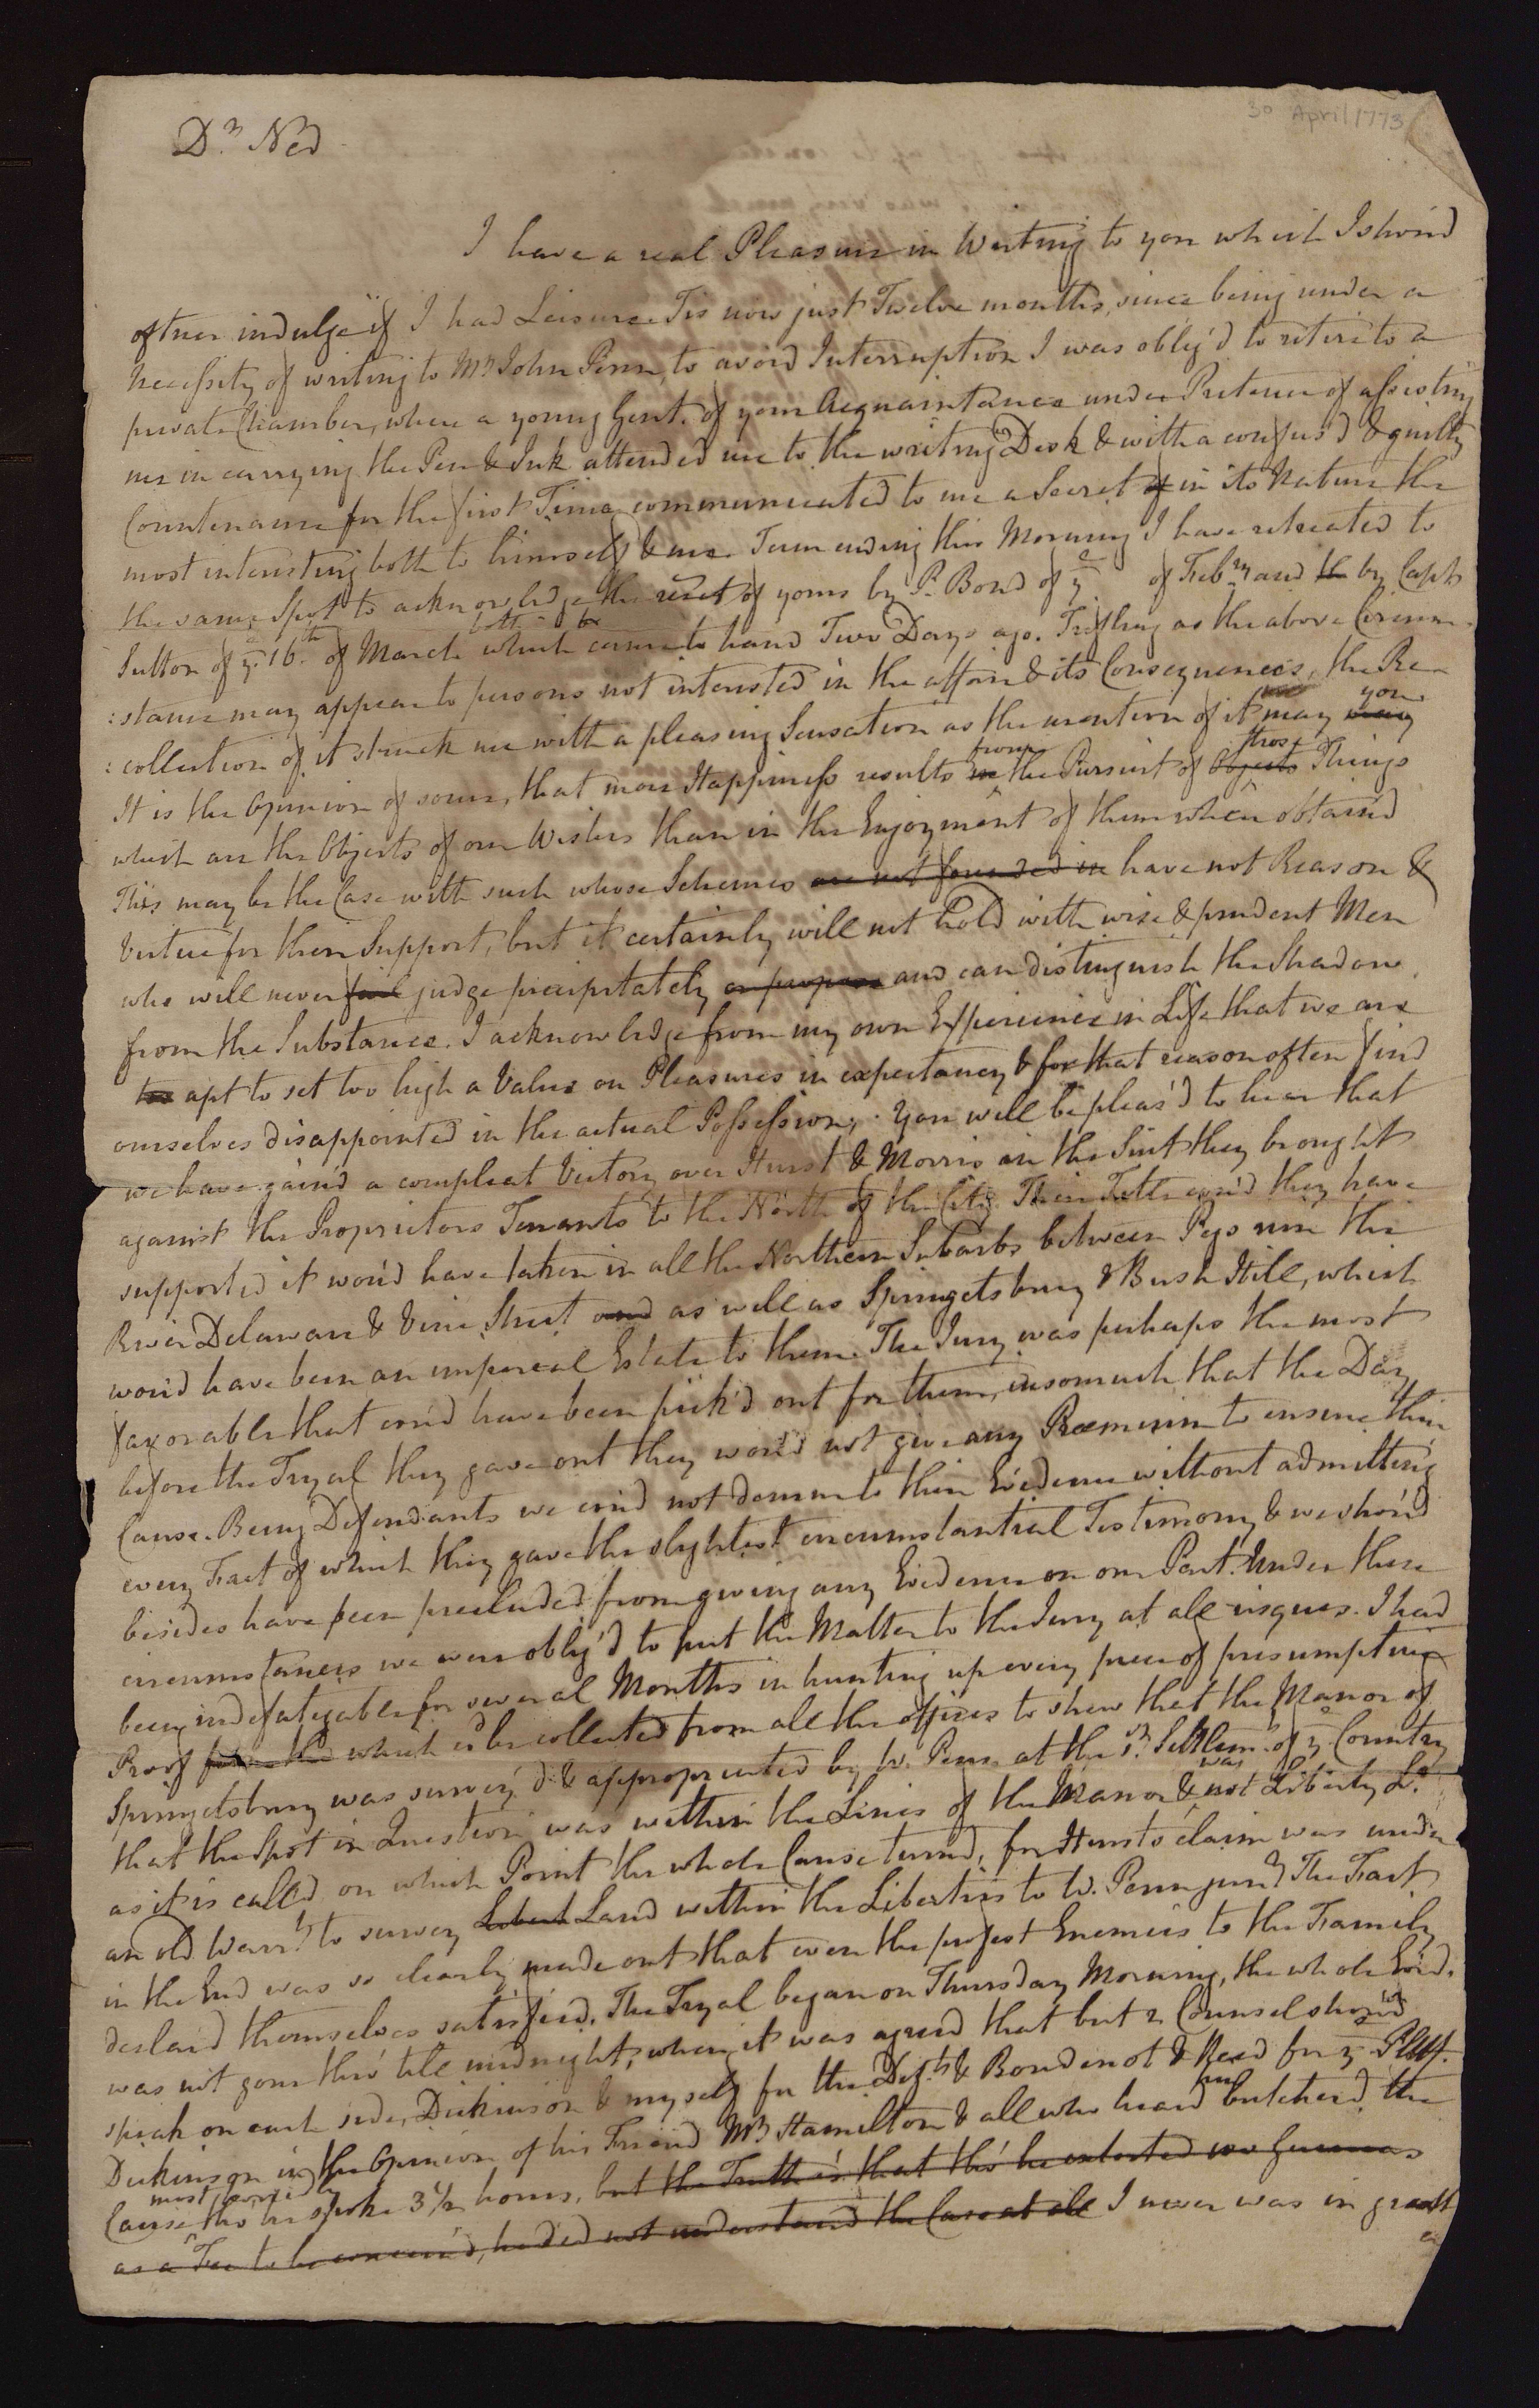 30 April 1773
Dr. Ned
I have a real Pleasure in Writing to you which I shou'd
oftner indulge if I had Leisure. Tis now just Twelve months, since being under a
necessity of writing to Mr. John Penn, to avoid Interruption I was oblig'd to retire to a
private Chamber, where a young Gent. of your Acquaintance under Pretence of assisting
me in carrying the Pen & Ink attended me to the writing Desk & with a confus'd & guilty
Countenance for the first Time communicated to me a Secret of in its Nature the
most interesting both to himself & me. Term ending this Morning I have retreated to
the same Spot to acknowledge the recet of yours by P. Bond of ye. of Febry and the by Capt
Sutton of ye. 16th. of March which both came to hand Two Days ago. Trifling as the above Circum
:stance may appear to persons not interested in the affair & its Consequences, the Re
:collection of it struck me with a pleasing Sensation as the mention of it may you may
It is the Opinion of some, that more Happiness results in from the Pursuit of Objects those Things
which are the Objects of our Wishes than in the Enjoyment of them when obtain'd
This may be the Case with such whose Schemes are not founded in have not Reason &
Virtue for their Support, but it certainly will not hold with wise & prudent Men
who will never judge precipitately and can distinguish the Shadow
from the Substance. I acknowledge from my own Experience in Life that we are
too apt to set too high a Value on Pleasures in expectancy & for that reason often find
ourselves disappointed in the actual Possession. You will be pleas'd to hear that
we have gain'd a compleat Victory over Hurst & Morris in the Suit they brought
against the Proprietors Tenants to the North of the City. Their Title cou'd they have
supported it wou'd have taken in all the Northern Suburbs between Pegs run the
River Delaware & Vine Street and as well as Springetsbury & Bush Hill, which
wou'd have been an imperial Estate to them. The Jury was perhaps the most
favorable that cou'd have been pick'd out for them, insomuch that the Day
before the Tryal they gave out they wou'd not give any Præmium to insure their
Cause. Being Defendants we cou'd not demur to their Evidence without admitting
every Fact of which they gave the slightest circumstantial Testimony & we shou'd
besides have been precluded from giving any Evidence on our Part. Under these
circumstances we were oblig'd to put the Matter to the Jury at all risques. I had
been indefatigable for several Months in hunting up every piece of presumptive
Proof which cd be collected from all the offices to shew that the Manor of
Springetsbury was survey'd & appropriated by W. Penn at the 1st. Settlemt. of ye. Country
that the Spot in Question was within the Lines of the Manor & was not Liberty Ld.
as it is called, on which Point the whole Cause turned, for Hursts claim was under
an old Warrt. to survey Libert Land within the Liberties to W. Penn junr. The Fact
in the End was so clearly made out that even the profest Enemies to the Family
declar'd themselves satisfied. The Tryal began on Thursday Morning, the whole Evid.
was not gone thro' till midnight, when it was agreed that but 2 Counsel shou'd
speak on each side, Dickinson & myself for the Defts. & Boudinot & Reed for ye Pltff.
Dickinson in the Opinion of his Friend Mr. Hamilton & all who heard him butcher'd the
Cause most horridly tho' he spoke 3 1/2 hours, but the Truth is that tho' he extorted two Guineas
as a Fee to be concern'd, he did not understand the Case at all I never was in greater